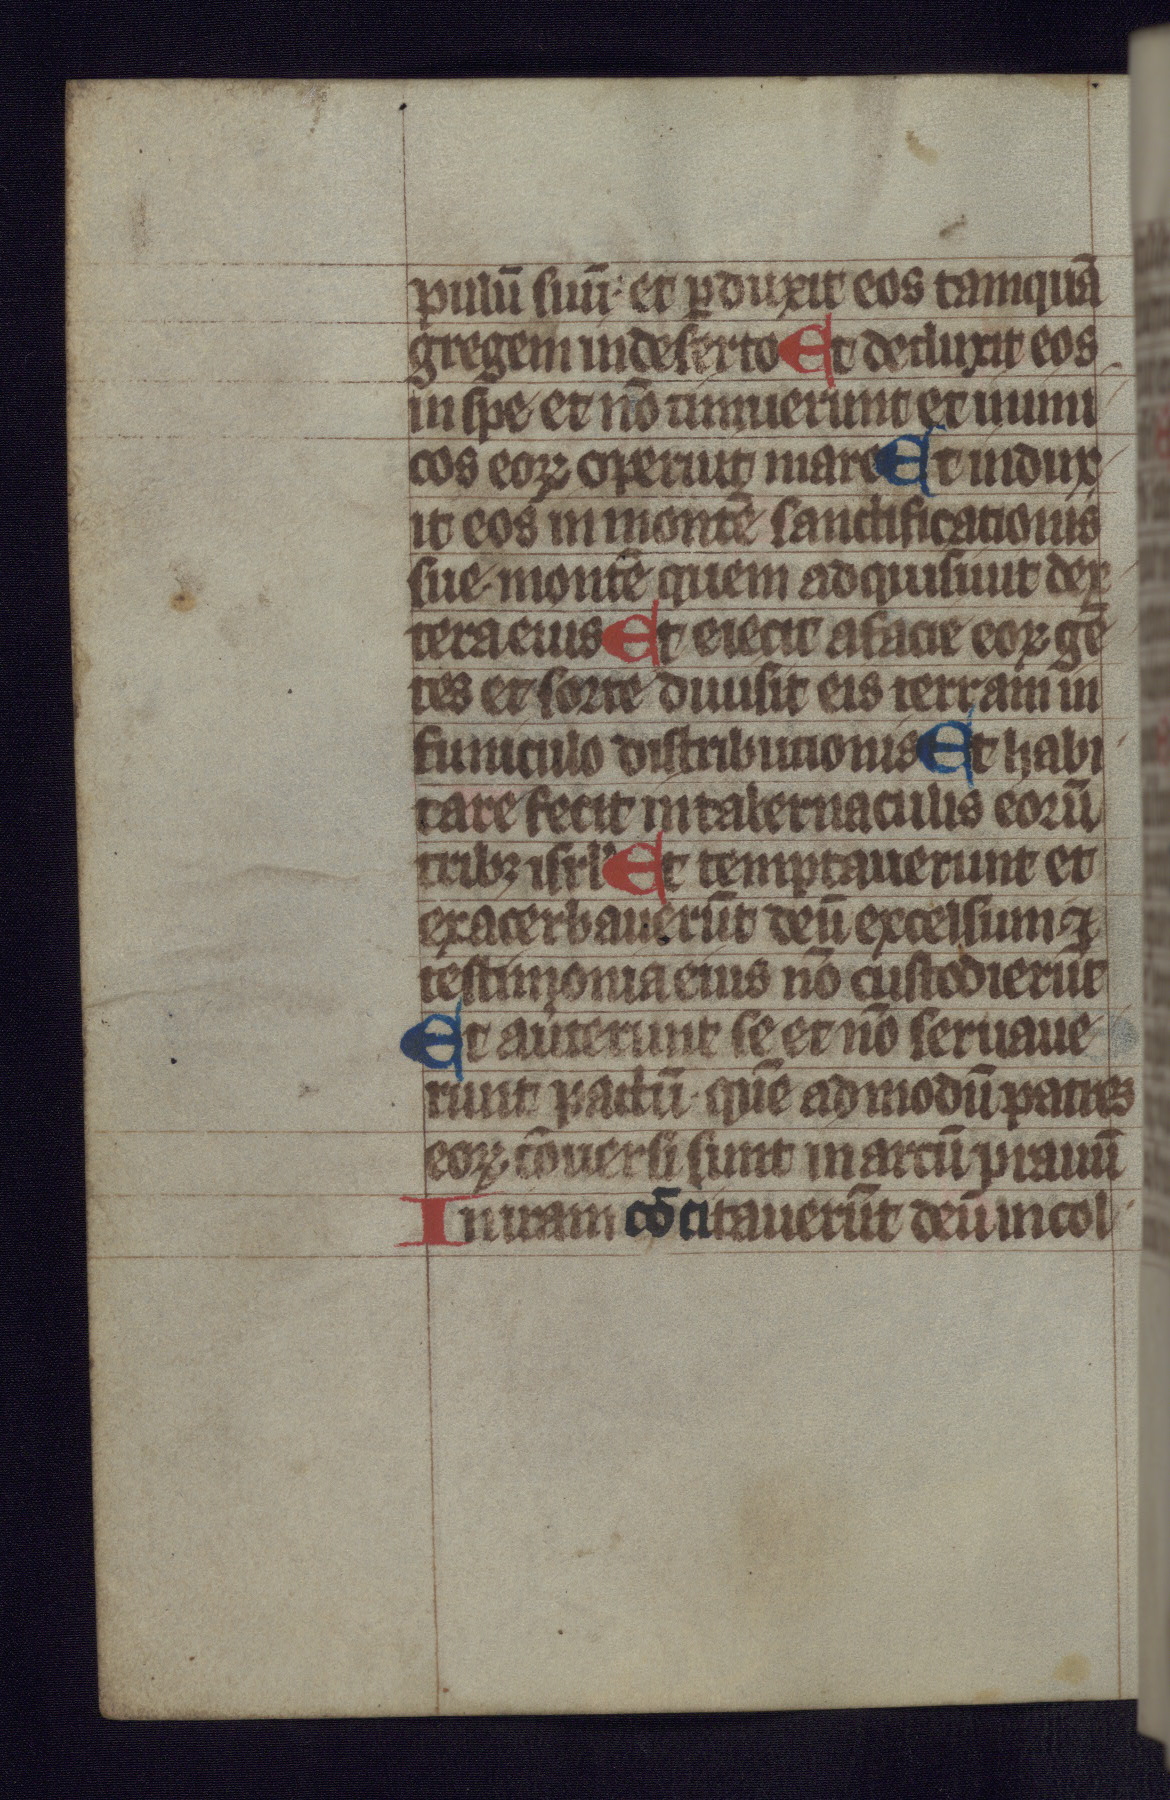 pulū suū· et ꝑduxit eos tamquā
gregem in deserto Et deduxit eos
in spe et nō timuerunt et inimi
cos eoꝝ operuit mare Et indux
it eos in montē sanctificationis
sue montē quem adquisiuit dex
tera eius Et eiecit a facie eoꝝ gē
tes et sorte diuisit eis terram in
funiculo distributionis Et habi
tare fecit in tabernaculis eorū
tribꝫ isrl̓ Et temptauerunt et
exacerbauerūt deū excelsum ⁊
testimonia eius nō custodierūt
Et auerterunt se et nō seruaue
runt pactū· quē admodū patres
eoꝝ cōuersi sunt in arcū prauū
In iram cōcitauerūt deū in col